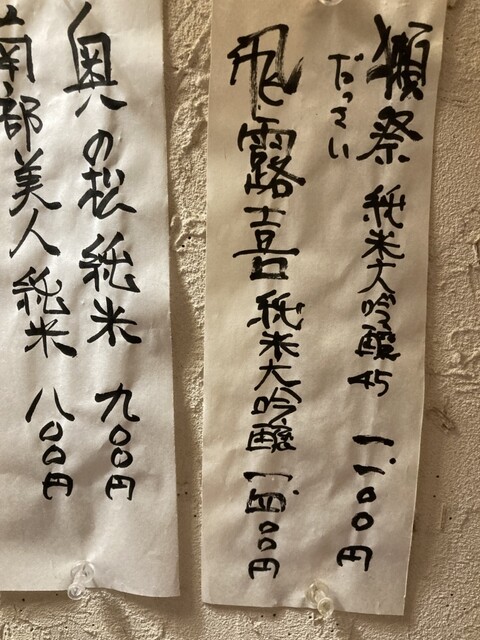 獺祭 純米大吟醸45 一、一〇〇円
だっさい
飛露喜 純米大吟醸 一、四〇〇円
奥の松 純米 九〇〇円
南部美人 純米 八〇〇円